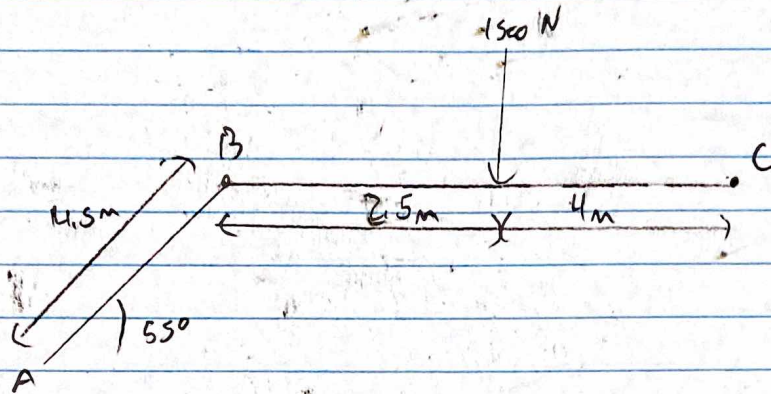 1500 N
B
C
4.5m
2.5m
4m
55°
A